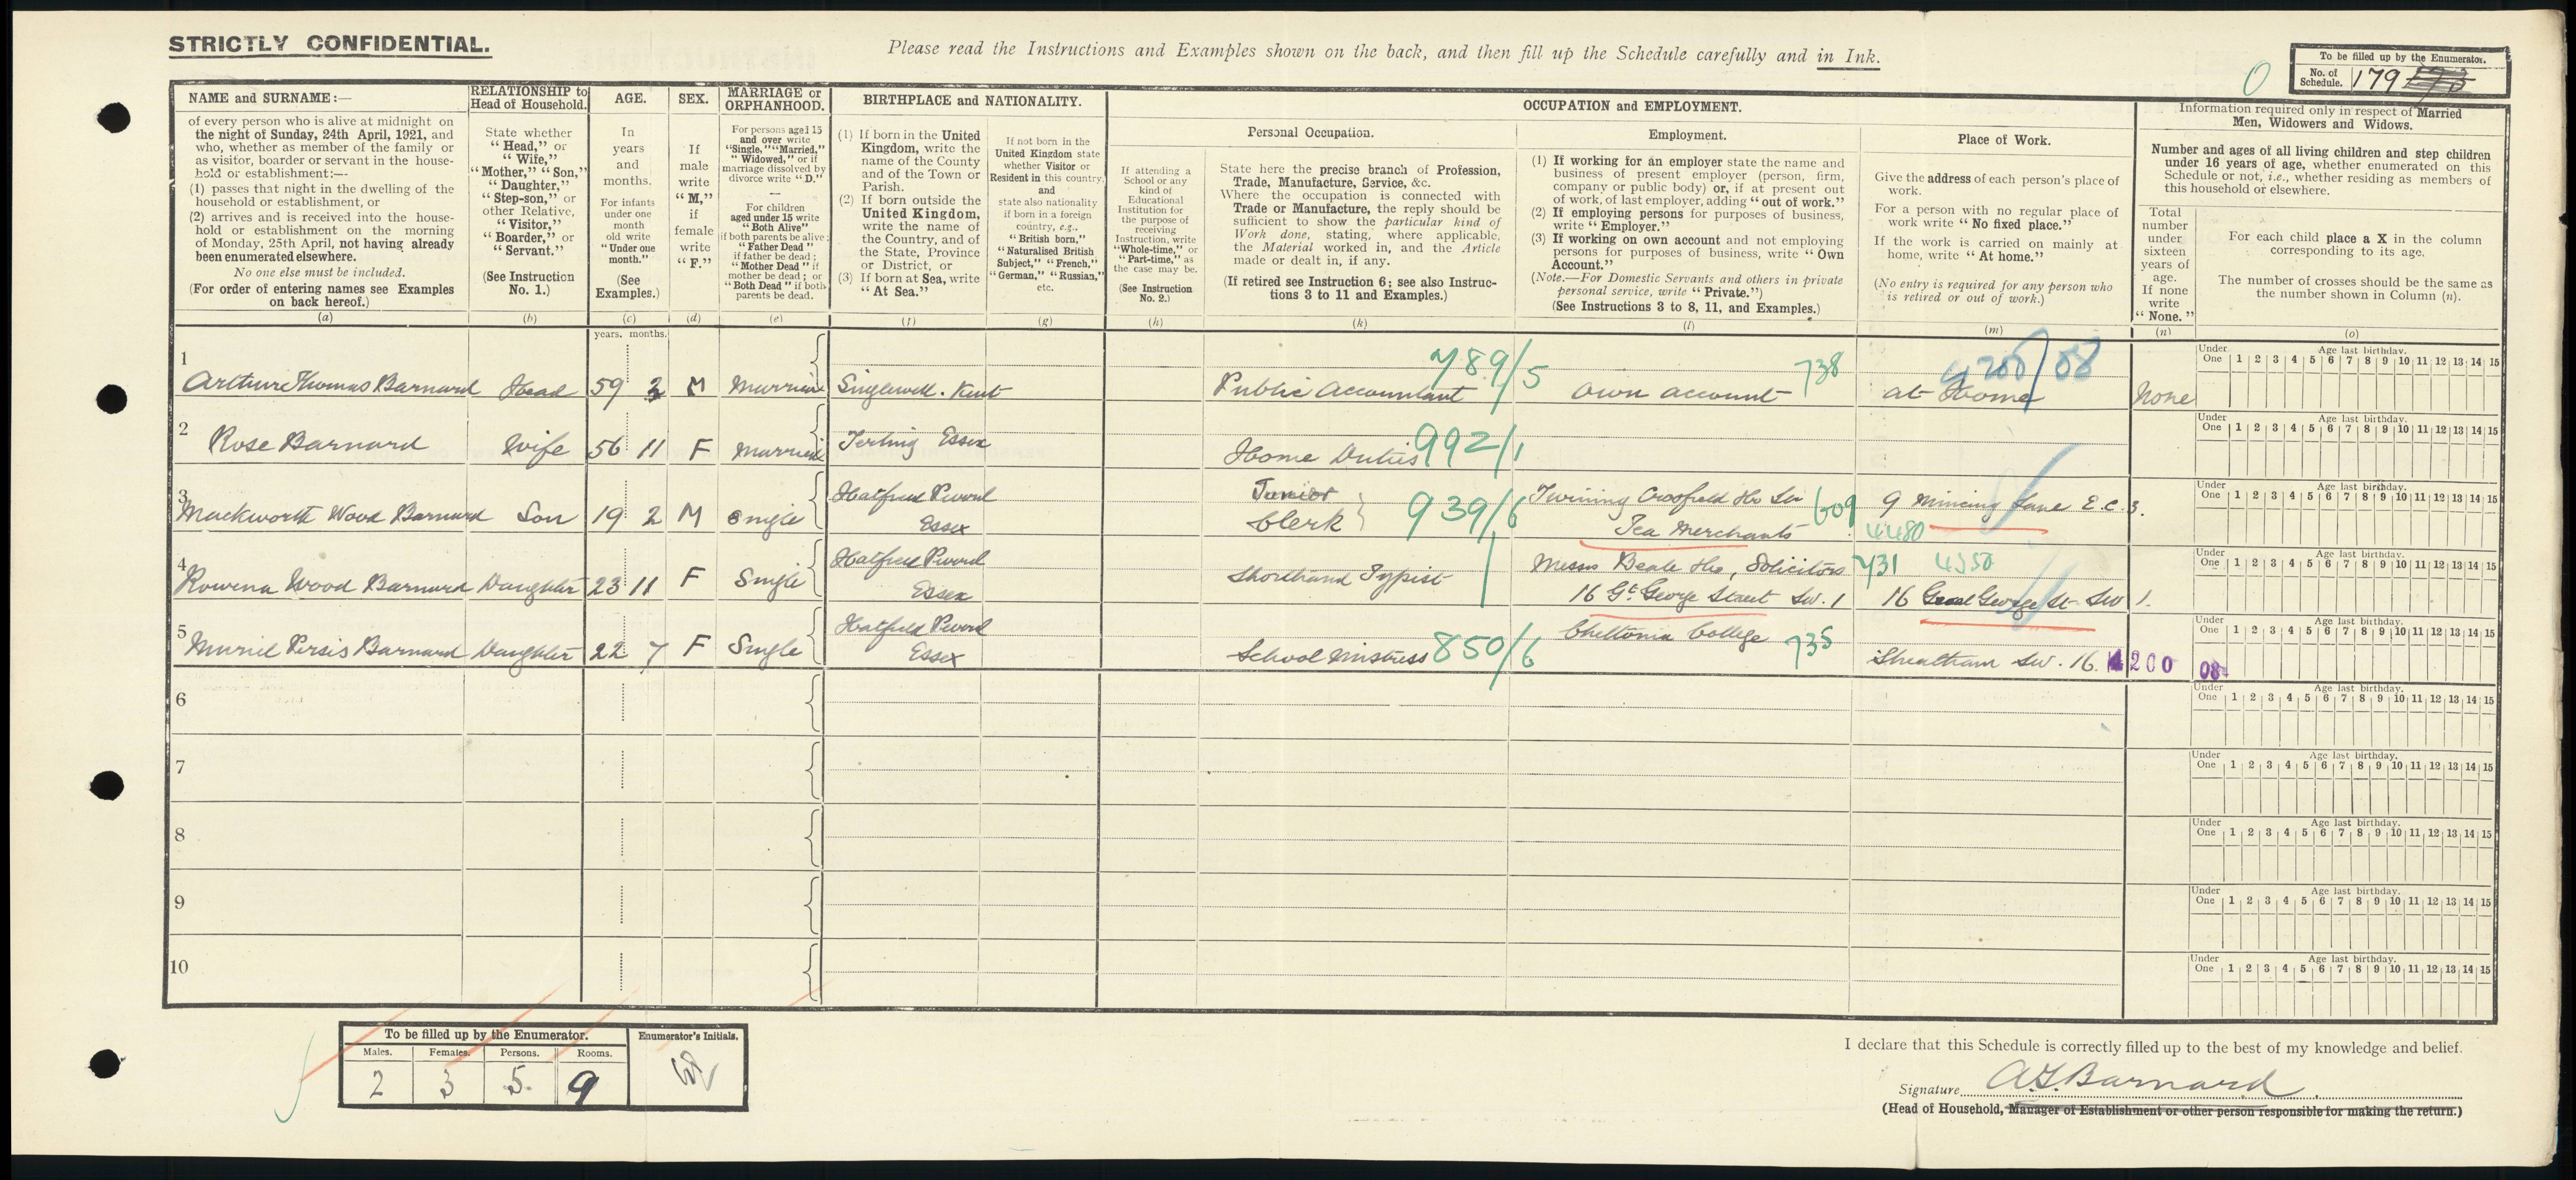 STRICTLY CONFIDENTIAL.
Please read the Instructions and Examples shown on the back, and then fill up the Schedule carefully and in Ink.
To be filled up by the Enumerator.
No. of Schedule. 179
NAME and SURNAME:—
of every person who is alive at midnight on
the night of Sunday, 24th April, 1921, and
who, whether as member of the family or
as visitor, boarder or servant in the house-
hold or establishment:—
(1) passes that night in the dwelling of the
household or establishment, or
(2) arrives and is received into the house-
hold or establishment on the morning
of Monday, 25th April, not having already
been enumerated elsewhere.
No one else must be included.
(For order of entering names see Examples
on back hereof.)
(a)
RELATIONSHIP to
Head of Household.
State whether
"Head," or
"Wife,"
"Mother," "Son,"
"Daughter,"
"Step-son," or
other Relative,
"Visitor,"
"Boarder," or
"Servant."
(See Instruction
No. 1.)
(b)
AGE.
In
years
and
months.
For infants
under one
month
old write
"Under one
month."
(See
Examples.)
(c)
years. months.
SEX.
If
male
write
"M,"
if
female
write
"F."
(d)
MARRIAGE or
ORPHANHOOD.
For persons aged 15
and over write
"Single," "Married,"
"Widowed," or if
marriage dissolved by
divorce write "D."
—
For children
aged under 15 write
"Both Alive"
if both parents be alive;
"Father Dead"
if father be dead;
"Mother Dead" if
mother be dead; or
"Both Dead" if both
parents be dead.
(e)
BIRTHPLACE and NATIONALITY.
(1) If born in the United
Kingdom, write the
name of the County
and of the Town or
Parish.
(2) If born outside the
United Kingdom,
write the name of
the Country, and of
the State, Province
or District, or
(3) If born at Sea, write
"At Sea."
(f)
If not born in the
United Kingdom state
whether Visitor or
Resident in this country,
and
state also nationality
if born in a foreign
country, e.g.,
"British born,"
"Naturalised British
Subject," "French,"
"German," "Russian,"
etc.
(g)
OCCUPATION and EMPLOYMENT.
If attending a
School or any
kind of
Educational
Institution for
the purpose of
receiving
Instruction, write
"Whole-time," or
"Part-time," as
the case may be.
(See Instruction
No. 2.)
(h)
Personal Occupation.
State here the precise branch of Profession,
Trade, Manufacture, Service, &c.
Where the occupation is connected with
Trade or Manufacture, the reply should be
sufficient to show the particular kind of
Work done, stating, where applicable,
the Material worked in, and the Article
made or dealt in, if any.
(If retired see Instruction 6; see also Instruc-
tions 3 to 11 and Examples.)
(k)
Employment.
(1) If working for an employer state the name and
business of present employer (person, firm,
company or public body) or, if at present out
of work, of last employer, adding "out of work."
(2) If employing persons for purposes of business,
write "Employer."
(3) If working on own account and not employing
persons for purposes of business, write "Own
Account."
(Note.—For Domestic Servants and others in private
personal service, write "Private.")
(See Instructions 3 to 8, 11, and Examples.)
(l)
Place of Work.
Give the address of each person's place of
work.
For a person with no regular place of
work write "No fixed place."
If the work is carried on mainly at
home, write "At home."
(No entry is required for any person who
is retired or out of work.)
(m)
Information required only in respect of Married
Men, Widowers and Widows.
Number and ages of all living children and step children
under 16 years of age, whether enumerated on this
Schedule or not, i.e., whether residing as members of
this household or elsewhere.
Total
number
under
sixteen
years of
age.
If none
write
"None."
(n)
For each child place a X in the column
corresponding to its age.
The number of crosses should be the same as
the number shown in Column (n).
(o)
1 Arthur Thomas Barnard Head 59 2 M Married Singlewell. Kent Public Accountant 789/5 own account 738 at Home 4200/08 None
2 Rose Barnard Wife 56 11 F Married Terling Essex Home Duties 992/1
3 Mackworth Wood Barnard Son 19 2 M Single Hatfield Peverel Essex Junior Clerk 939/6 Twining Crosfield Tea Merchants 609 9 Mincing Lane E.C.3. 4480
4 Rowena Wood Barnard Daughter 23 11 F Single Hatfield Peverel Essex Shorthand Typist Messrs Beale &Co, Solicitors 16 Gt. George Street S.W.1 731 16 Great George St. SW 1.
5 Muriel Persis Barnard Daughter 22 7 F Single Hatfield Peverel Essex School Mistress 850/6 College 735 SW. 16. 4200 08
6
7
8
9
10
Under One Age last birthday. 1 2 3 4 5 6 7 8 9 10 11 12 13 14 15
Under One Age last birthday. 1 2 3 4 5 6 7 8 9 10 11 12 13 14 15
Under One Age last birthday. 1 2 3 4 5 6 7 8 9 10 11 12 13 14 15
Under One Age last birthday. 1 2 3 4 5 6 7 8 9 10 11 12 13 14 15
Under One Age last birthday. 1 2 3 4 5 6 7 8 9 10 11 12 13 14 15
Under One Age last birthday. 1 2 3 4 5 6 7 8 9 10 11 12 13 14 15
Under One Age last birthday. 1 2 3 4 5 6 7 8 9 10 11 12 13 14 15
Under One Age last birthday. 1 2 3 4 5 6 7 8 9 10 11 12 13 14 15
Under One Age last birthday. 1 2 3 4 5 6 7 8 9 10 11 12 13 14 15
Under One Age last birthday. 1 2 3 4 5 6 7 8 9 10 11 12 13 14 15
To be filled up by the Enumerator.
Males. Females. Persons. Rooms.
2 3 5 9
Enumerator's Initials.
I declare that this Schedule is correctly filled up to the best of my knowledge and belief.
Signature A.T. Barnard
(Head of Household, Manager of Establishment or other person responsible for making the return.)